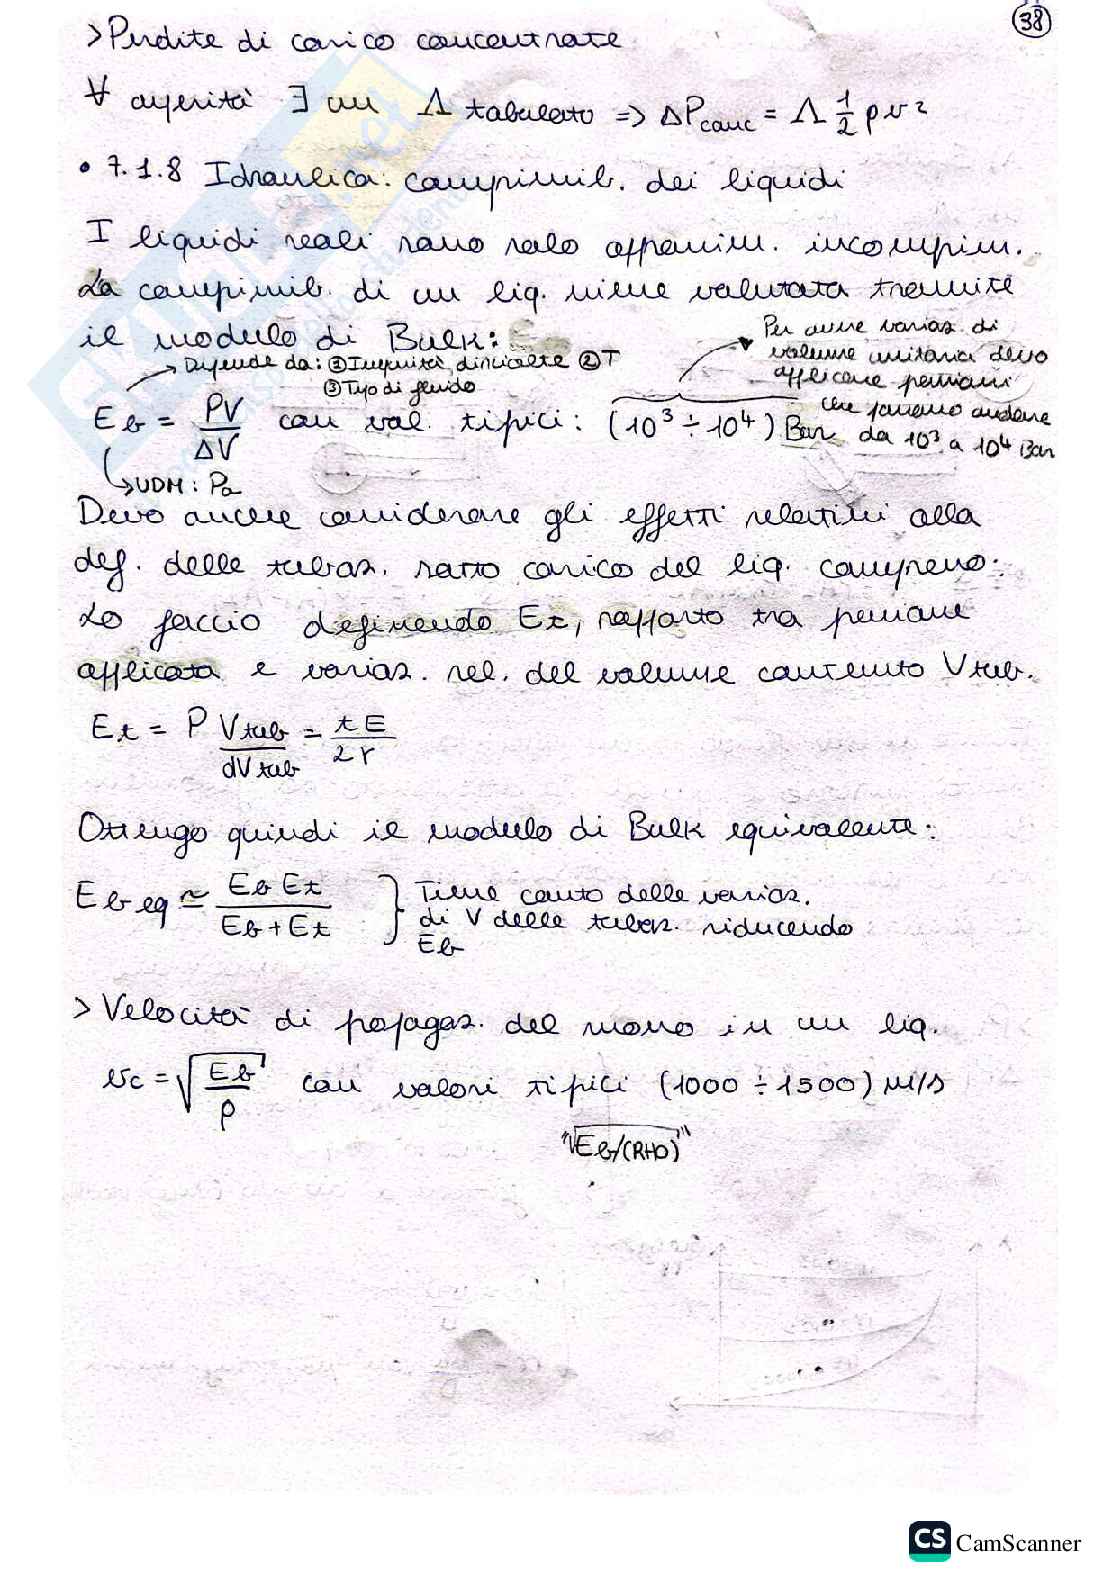 38
> Perdite di carico concentrate
∀ asperità ∃ un Λ tabulato => ΔPconc = Λ 1/2 ρv²
• 7.1.8 Idraulica: comprimib. dei liquidi
I liquidi reali sono solo apparem. incomprim.
La comprimib. di un liq. viene valutata tramite
il modulo di Bulk:
Dipende da: ① Impurità disciolte ② T
③ Tipo di fluido
Per avere variaz. di
volume unitaria devo
applicare pressioni
che possono andare
da 10³ a 10⁴ Bar
Eb = PV/ΔV con val. tipici: (10³ ÷ 10⁴) Bar
UDM: Pa
Devo anche considerare gli effetti relativi alla
def. delle tubaz. sotto carico del liq. compresso:
Lo faccio definendo Et, rapporto tra pressione
applicata e variaz. rel. del volume contenuto Vtub.
Et = P Vtub/dVtub = tE/2r
Ottengo quindi il modulo di Bulk equivalente:
Eb eq ≃ Eb Et/Eb+Et } Tiene conto delle variaz.
di V delle tubaz. riducendo
Eb
> Velocità di propagaz. del suono in un liq.
vc = √Eb/ρ con valori tipici (1000 ÷ 1500) m/s
"√Eb/(RHO)"
CS CamScanner